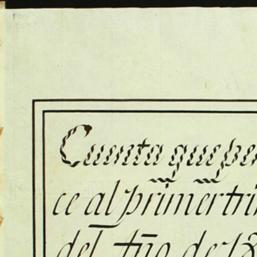 Cuenta que per
ce al primer tri
del Año de 18